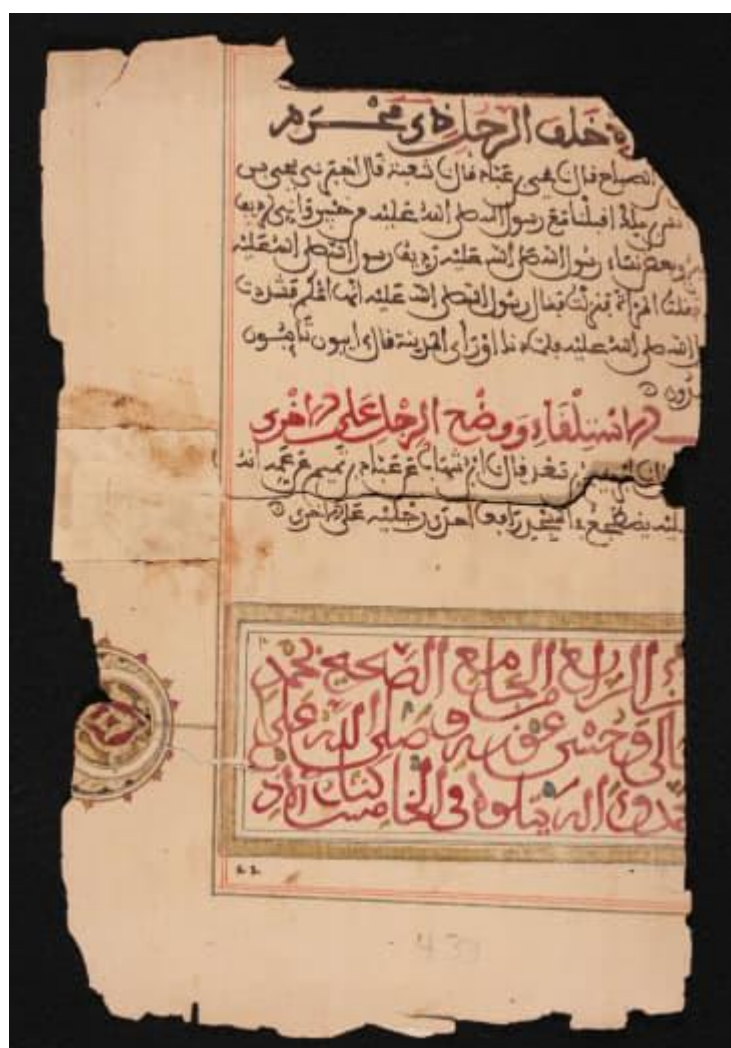 خلف الرجل ذا محرم
الصباح قال نا يحيى بن عباد قال نا شعبة قال اخبرني يحيى بن
اقبلنا مع رسول الله صلى الله عليه من خيبر واني رديف
وبعض نساء رسول الله صلى الله عليه رديف رسول الله صلى الله عليه
المراة فنزلت فقال رسول الله صلى الله عليه انها امكم فشددت
الله صلى الله عليه فلما دنا او راى المدينة قال ايبون تايبون
الاستلقاء ووضع الرجل على الاخرى
ابن شهاب عن عباد بن تميم عن عمه انه
يضطجع في المسجد رافعا احدى رجليه على الاخرى
الرابع من الجامع الصحيح بحمد
وحسن عونه وصلى الله على
واله يتلوه في الخامس كتاب الادب
439